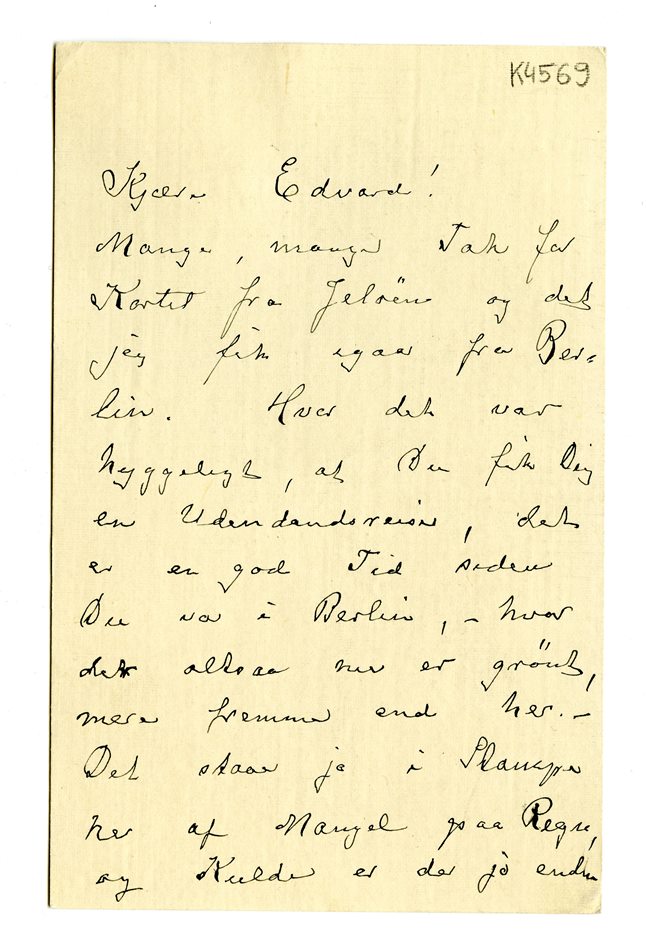 K4569
Kjære Edvard!
Mange, mange Tak for
Kortet fra Jelöen og det
jeg fik igaar fra Ber-
lin. Hvor det var
hyggeligt, at Du fik Dig
en Udendandsreise, det
er en god Tid siden
Du var i Berlin, – hvor
det altsaa nu er grönt,
mere fremme end her. –
Det staar jo i Stampe
her af Mangel paa Regn,
og Kulde er der jo endnu